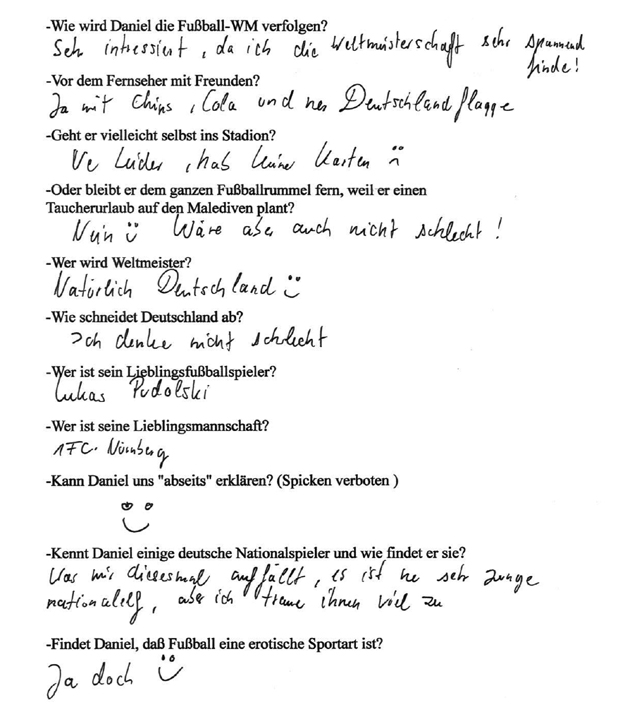 -Wie wird Daniel die Fußball-WM verfolgen?
Sehr intressiert, da ich die Weltmeisterschaft sehr spannend
finde!
-Vor dem Fernseher mit Freunden?
Ja mit Chips, Cola und ner Deutschlandflagge
-Geht er vielleicht selbst ins Stadion?
Ne leider, hab keine Karten
-Oder bleibt er dem ganzen Fußballrummel fern, weil er einen
Taucherurlaub auf den Malediven plant?
Nein Wäre aber auch nicht schlecht!
-Wer wird Weltmeister?
Natürlich Deutschland
-Wie schneidet Deutschland ab?
Ich denke nicht schlecht
-Wer ist sein Lieblingsfußballspieler?
Lukas Podolski
-Wer ist seine Lieblingsmannschaft?
1FC. Nürnberg
-Kann Daniel uns "abseits" erklären? (Spicken verboten )
-Kennt Daniel einige deutsche Nationalspieler und wie findet er sie?
Was mir diesesmal auffällt, es ist ne sehr junge
nationalelf, aber ich traue ihnen viel zu
-Findet Daniel, daß Fußball eine erotische Sportart ist?
Ja doch